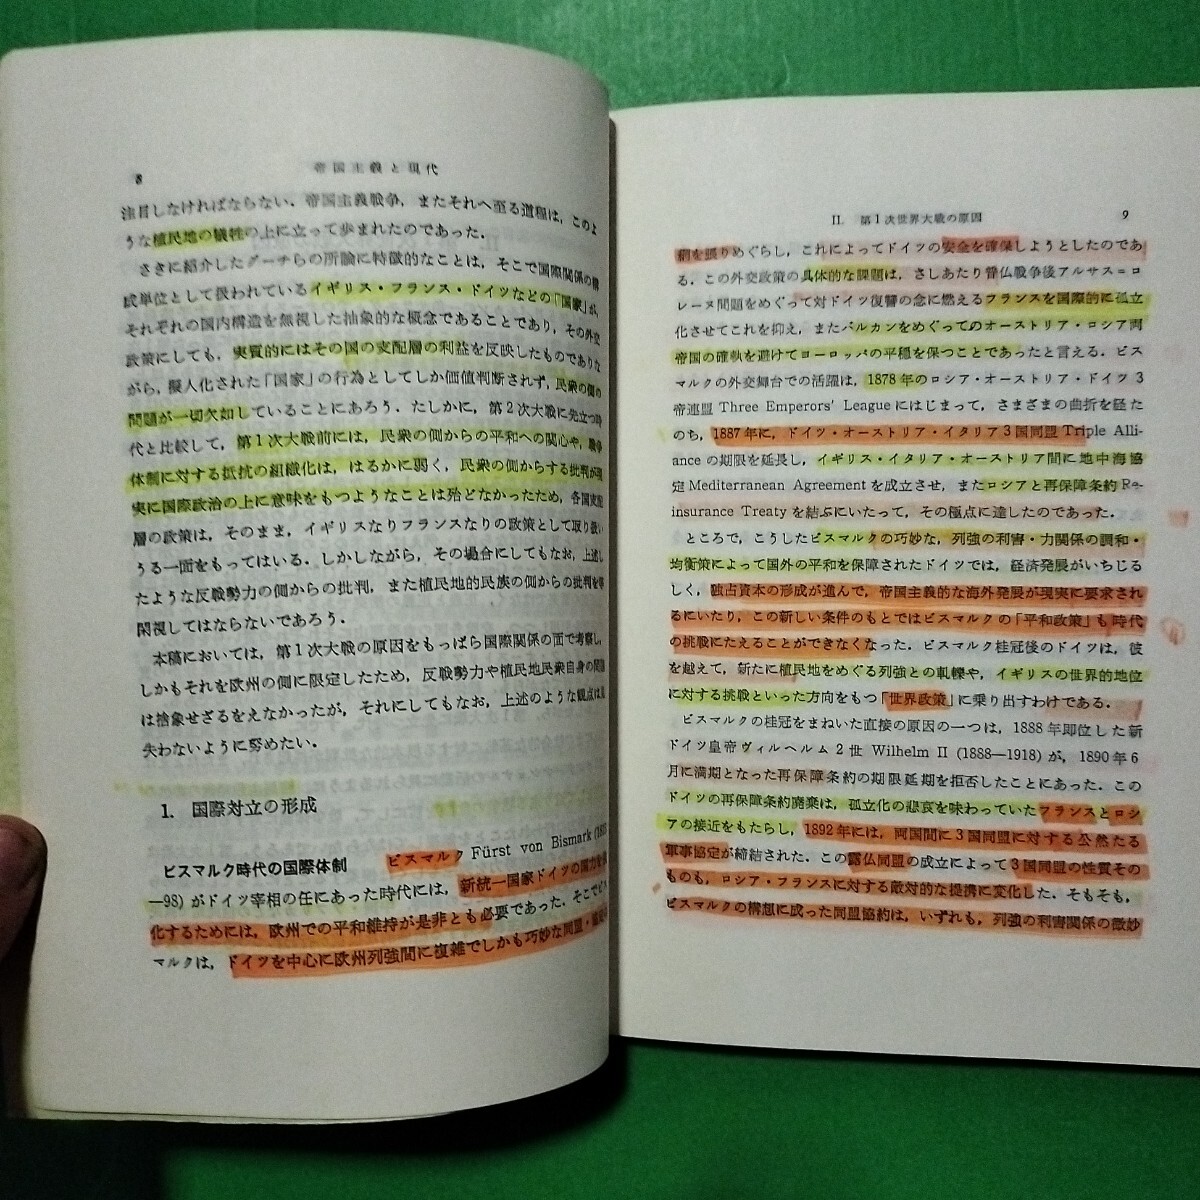 8
帝国主義と現代
注目しなければならない．帝国主義戦争，またそれへ至る道程は，このよ
うな植民地の犠牲の上に立って歩まれたのであった．
さきに紹介したグーチらの所論に特徴的なことは，そこで国際関係の構
成単位として扱われているイギリス・フランス・ドイツなどの「国家」が，
それぞれの国内構造を無視した抽象的な概念であることであり，その外交
政策にしても，実質的にはその国の支配層の利益を反映したものでありな
がら，擬人化された「国家」の行為としてしか価値判断されず，民衆の側の
問題が一切欠如していることにあろう．たしかに，第2次大戦に先立つ時
代と比較して，第1次大戦前には，民衆の側からの平和への関心や，戦争
体制に対する抵抗の組織化は，はるかに弱く，民衆の側からする批判が現
実に国際政治の上に意味をもつようなことは殆どなかったため，各国支配
層の政策は，そのまま，イギリスなりフランスなりの政策として取り扱い
うる一面をもってはいる．しかしながら，その場合にしてもなお，上述し
たような反戦勢力の側からの批判，また植民地的民族の側からの批判を等
閑視してはならないであろう．
本稿においては，第1次大戦の原因をもっぱら国際関係の面で考察し，
しかもそれを欧州の側に限定したため，反戦勢力や植民地民衆自身の問題
は捨象せざるをえなかったが，それにしてもなお，上述のような観点は見
失わないように努めたい．
1. 国際対立の形成
ビスマルク時代の国際体制 ビスマルク Fürst von Bismark (18
—98) がドイツ宰相の任にあった時代には，新統一国家ドイツの国力を
化するためには，欧州での平和維持が是非とも必要であった．そこでビス
マルクは，ドイツを中心に欧州列強間に複雑でしかも巧妙な同盟・協
II. 第1次世界大戦の原因
9
網を張りめぐらし，これによってドイツの安全を確保しようとしたのであ
る．この外交政策の具体的な課題は，さしあたり普仏戦争後アルサス＝ロ
レーヌ問題をめぐって対ドイツ復讐の念に燃えるフランスを国際的に孤立
化させてこれを抑え，またバルカンをめぐってのオーストリア・ロシア両
帝国の確執を避けてヨーロッパの平穏を保つことであったと言える．ビス
マルクの外交舞台での活躍は，1878年のロシア・オーストリア・ドイツ3
帝連盟 Three Emperors' League にはじまって，さまざまの曲折を経た
のち，1887年に，ドイツ・オーストリア・イタリア3国同盟 Triple Alli-
ance の期限を延長し，イギリス・イタリア・オーストリア間に地中海協
定 Mediterranean Agreement を成立させ，またロシアと再保障条約 Re-
insurance Treaty を結ぶにいたって，その極点に達したのであった．
ところで，こうしたビスマルクの巧妙な，列強の利害・力関係の調和・
均衡策によって国外の平和を保障されたドイツでは，経済発展がいちじる
しく，独占資本の形成が進んで，帝国主義的な海外発展が現実に要求され
るにいたり，この新しい条件のもとではビスマルクの「平和政策」も時代
の挑戦にたえることができなくなった．ビスマルク桂冠後のドイツは，彼
を越えて，新たに植民地をめぐる列強との軋轢や，イギリスの世界的地位
に対する挑戦といった方向をもつ「世界政策」に乗り出すわけである．
ビスマルクの桂冠をまねいた直接の原因の一つは，1888年即位した新
ドイツ皇帝ヴィルヘルム2世 Wilhelm II (1888—1918) が，1890年6
月に満期となった再保障条約の期限延期を拒否したことにあった．この
ドイツの再保障条約廃棄は，孤立化の悲哀を味わっていたフランスとロシ
アの接近をもたらし，1892年には，両国間に3国同盟に対する公然たる
軍事協定が締結された．この露仏同盟の成立によって3国同盟の性質その
ものも，ロシア・フランスに対する敵対的な提携に変化した．そもそも，
ビスマルクの構想に成った同盟協約は，いずれも，列強の利害関係の微妙